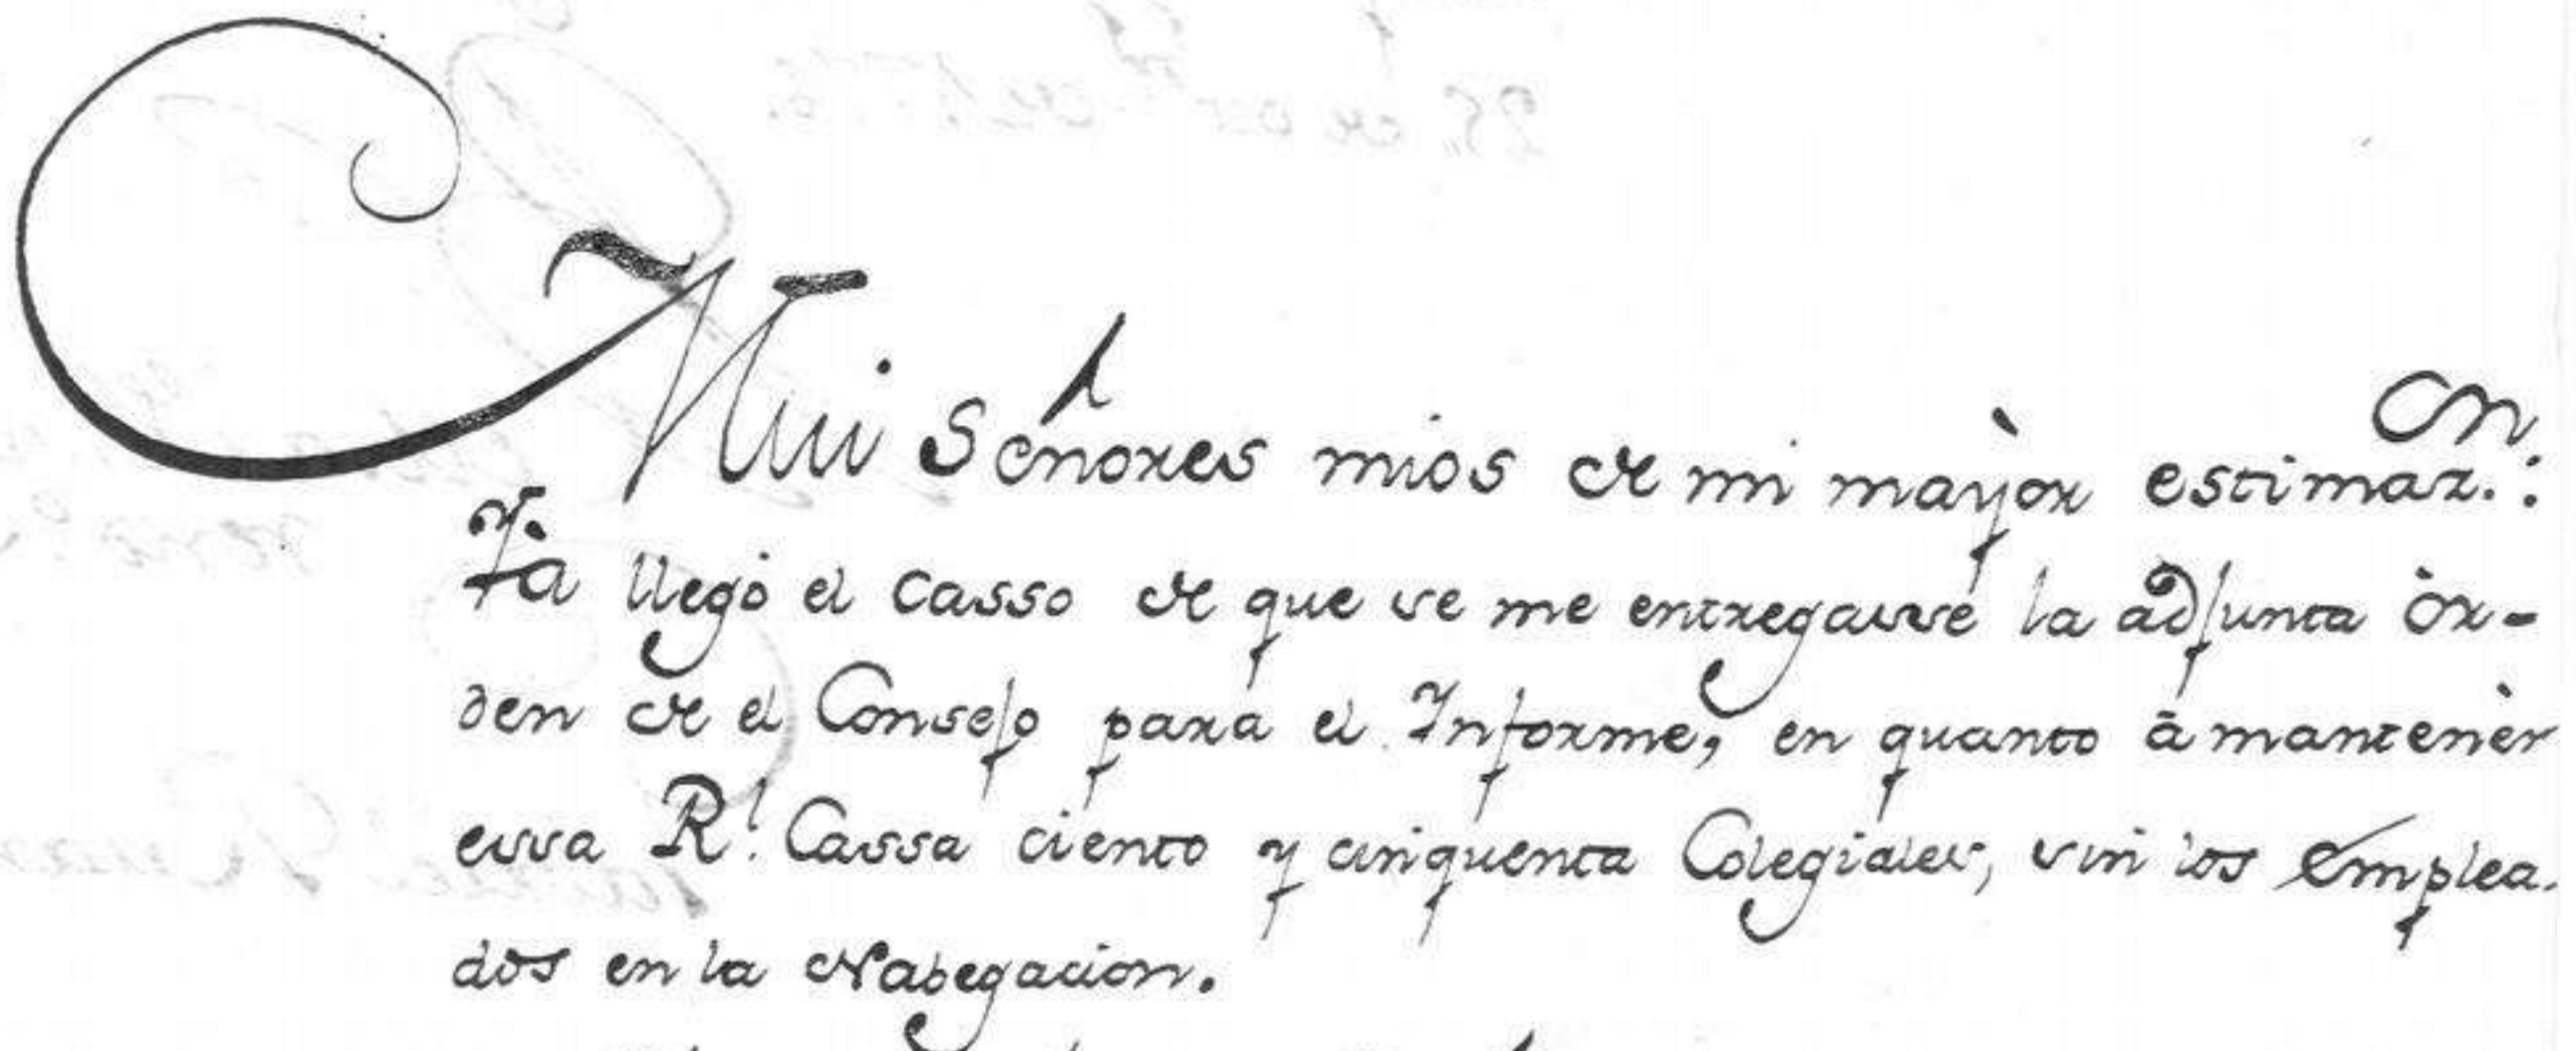 Mui Señores mios de mi mayòr estimaz.on:
Yà llegó el casso de que se me entregasse la adjunta òr-
den de el Consejo para el Informe, en quanto à mantenèr
essa Rl. Cassa ciento y cinquenta Colegiales, sin los Emplea-
dos en la Nabegacion.